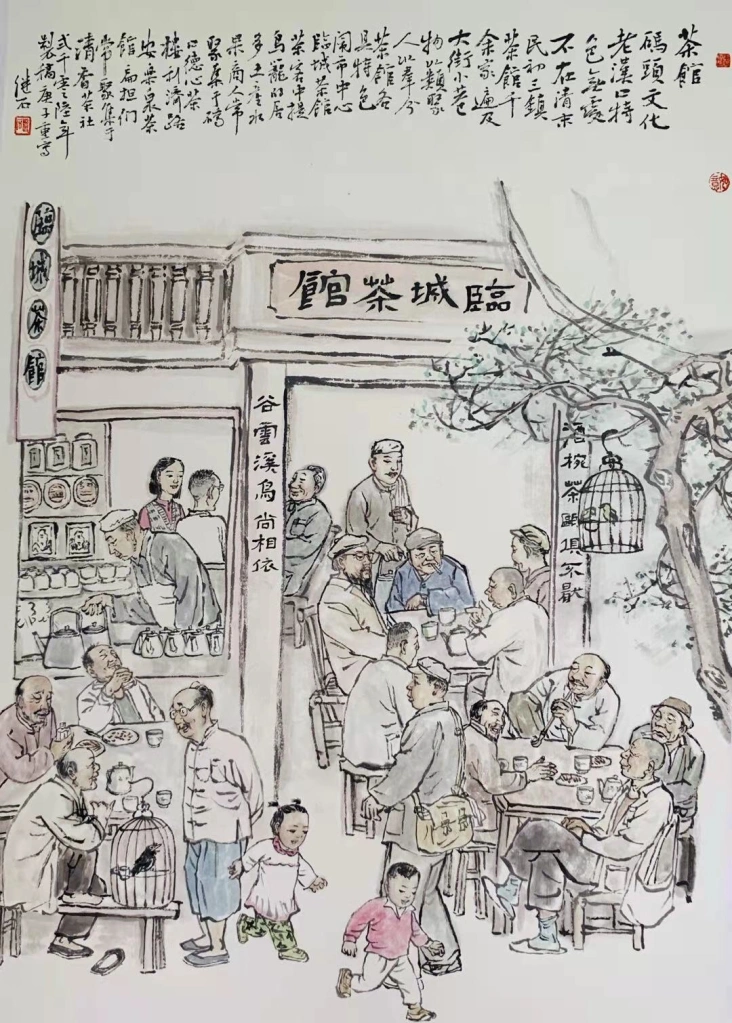 茶館
碼頭文化
老漢口特
色無處
不在清末
民初三鎮
茶館千
余家遍及
大街小巷
物以類聚
人以羣分
茶館各
具特色
鬧市中心
臨城茶館
茶客中提
鳥籠的居
多土產水
果商人常
聚集于碼
德心茶
樓利濟路
安樂泉茶
館扁担们
常聚集于
清香茶社
弍千零陸年
製稿庚子重寫
継石
臨城茶館
臨城茶館
酒椀茶甌俱不厭
谷雲溪鳥尚相依